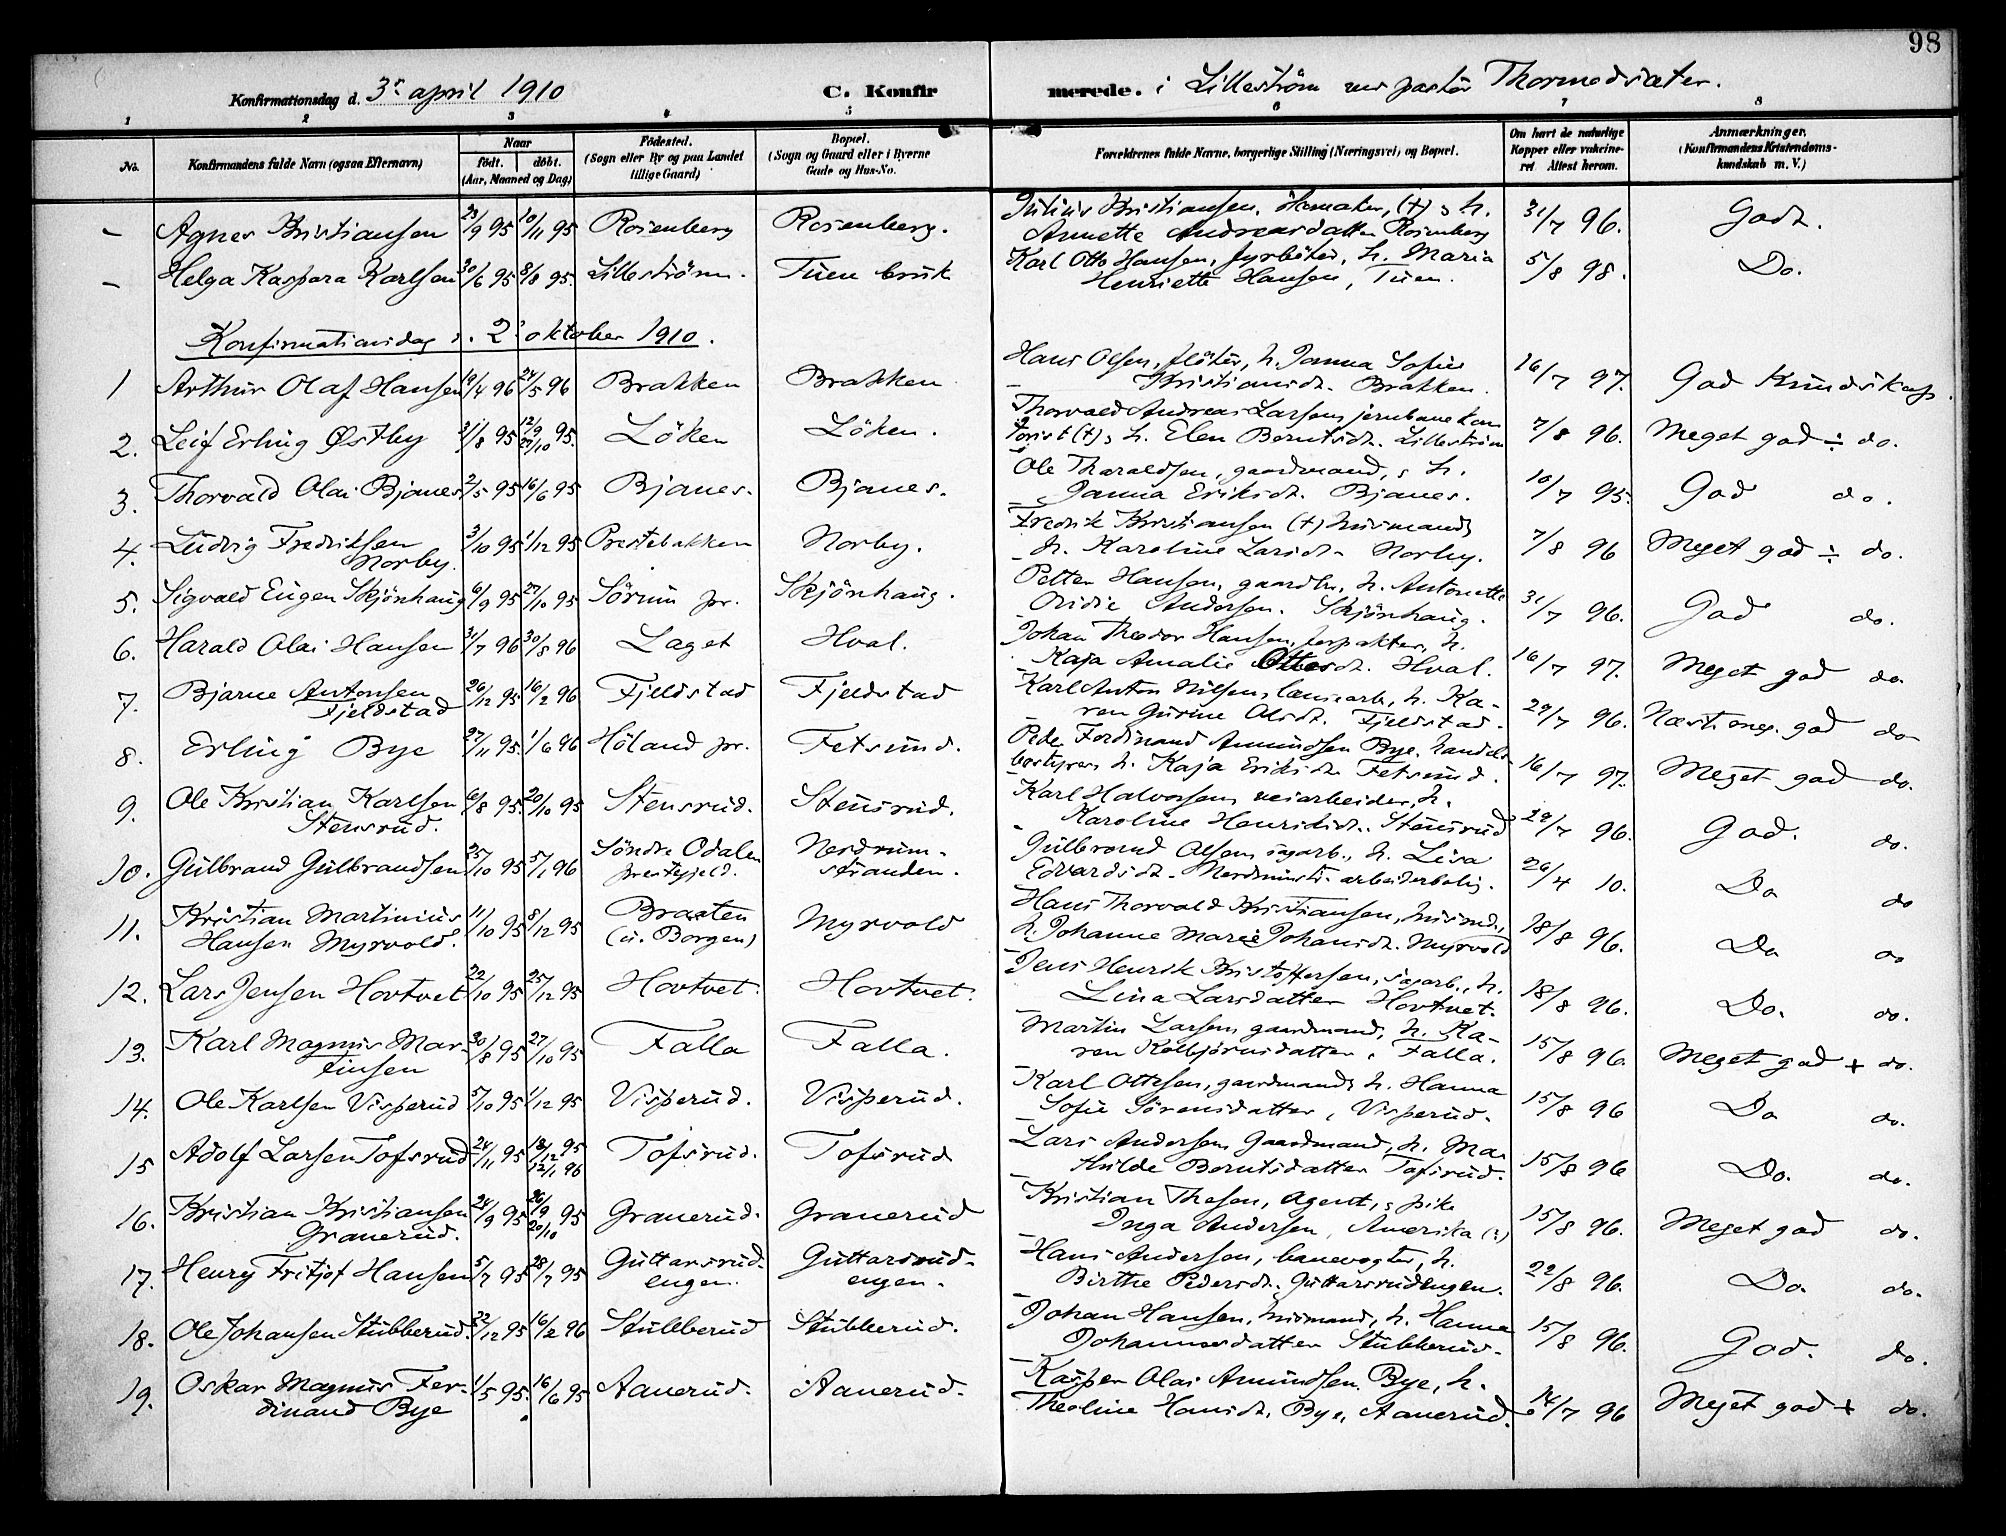 98
Konfirmationsdag d. 3' april 1910 C. Konfirmerede. i Lilleström ved pastor Thormodsæter.
1 2 3 4 5 6 7 8
No. Konfirmandens fulde Navn (ogsaa Efternavn) Naar født. døbt. (Aar, Maaned og Dag) Fødested. (Sogn eller By og paa Landet tillige Gaard) Bopæl. (Sogn og Gaard eller i Byerne Gade og Hus-No. Forældrenes fulde Navne, borgerlige Stilling (Næringsvei) og Bopæl. Om havt de naturlige Kopper eller vakcineret Attest herom. Anmærkninger. (Konfirmandens Kristendomskundskab m. V.)
- Agnes Kristiansen 23/9 95 10/11 95 Rosenberg Rosenberg. Julius Kristiansen, skomaker, (+) & h. 31/7 96. Godt.
Annette Andreasdatter Rosenberg
- Helga Kaspara Karlsen 30/6 95 8/8 95. Lilleström. Tuen bruk Karl Otto Hansen, fyrböter, h. Maria 5/8 98. Do.
Henriette Hansen, Tuen.
Konfirmationsdag d. 2' oktober 1910.
1 Arthur Olaf Hansen 19/4 96 24/5 96 Brakken Brakken Hans Olsen, flöter, h. Janna Sofie 16/7 97. God Kundskap.
Kristiansdt. Brakken.
2. Leif Erling Østby 31/8 95 12/9 95. 27/10 Löken Löken. Thorvald Andreas Larsen, jernbanekon
torist (+) & h. Elen Berntsdt. Lilleström 7/8 96. Meget god ÷ do.
3. Thorvald Olai Bjanes 2/5 95 16/6 95 Bjanes. Bjanes. Ole Tharaldsen, gaardmand, & h. 10/7 95. God do.
Janna Eriksdt. Bjanes.
4. Ludvig Fredriksen 3/10 95 1/12 95 Prestebakken Norby. Fredrik Kristiansen (+) husmand & 7/8 96 Meget god ÷ do.
Norby. h. Karoline Larsdt. Norby.
5. Sigvald Eugen Skjönhaug 6/9 95 27/10 95 Sörum pr. Skjönhaug. Petter Hansen, gaardbr., h. Antonette 31/7 96. God do.
Ovidie Andersen. Skjönhaug.
6. Harald Olai Hansen 31/7 96 30/8 96 Laget Hval. Johan Theodor Hansen, forpakter, h. 16/7 97. Meget god do.
Kaja Amalie Ottersdt. Hval.
7. Bjarne Antonsen 26/12 95 16/2 96 Fjeldstad Fjeldstad Karl Anton Nilsen, lænsearb., h. Ka- 29/7 96. Næsten meg. god do
Fjeldstad ren Gurine Olsdt. Fjeldstad.
8. Erling Bye 27/11 95. 1/6 96 Höland pr. Fetsund. Peder Ferdinand Amundsen Bye, handels 16/7 97. Meget god do.
bestyrer, h. Kaja Eriksdt. Fetsund.
9. Ole Kristian Karlsen 6/8 95. 20/10 95 Stensrud. Stensrud. Karl Halvorsen, veiarbeider, h. 29/7 96. God. do.
Stensrud. Karoline Henriksdt. Stensrud
10. Gulbrand Gulbrandsen 25/10 95 5/1 96 Söndre Odalen Nerdrum- Gulbrand Olsen, sagarb., h. Lisa 26/4 10. Do do
prestegjeld. stranden. Edvardsdt. Nerdrumstr. arbeiderbolig.
11. Kristian Martinius 11/10 95 8/12 95 Braaten Myrvold Hans Thorvald Kristiansen, husmd., 18/8 96. Do do
Hansen Myrvold. (u. Borgen) h. Johanne Marie Johansdt. Myrvold
12. Lars Jensen Hovtvet 22/10 95 25/12 95 Hovtvet. Hovtvet. Jens Henrik Kristoffersen, sagarb., h. 18/8 96. Do. do.
Lina Larsdatter Hovtvet.
13. Karl Magnus Mar- 30/8 95 27/10 95 Falla Falla. Martin Larsen, gaardmand, h. Ka- 15/8 96. Meget god + do.
tinsen ren Kolbjörnsdatter, Falla.
14. Ole Karlsen Visperud 5/10 95 1/12 95 Visperud. Visperud. Karl Ottesen, gaardmand, h. Hanna 15/8 96 Do do.
Sofie Sörensdatter, Visperud.
15 Adolf Larsen Tofsrud 24/11 95 18/12 95 12/1 96 Tofsrud. Tofsrud Lars Andersen, Gaardmand, h. Ma 15/8 96 Do. do.
thilde Berntsdatter Tofsrud.
16. Kristian Kristiansen 24/9 95 26/9 95 20/10 Granerud. Granerud Kristian Thesen, agent, & pike 15/8 96. Meget god do.
Granerud. Inga Andersen, Amerika (?)
17. Henry Fritjof Hansen 5/7 95 28/7 95 Guttarsrud- Guttarsrud- Hans Andersen, banevogter, h. 22/8 96. Do. do.
engen. engen. Birthe Pedersdt. Guttarsrudengen.
18. Ole Johansen Stubberud. 22/12 95 16/2 96 Stubberud Stubberud. Johan Hansen, husmand, h. Hanna 15/8 96. God. do.
Johannesdatter Stubberud.
19. Oskar Magnus Fer- 1/5 95. 16/6 95 Aanerud. Aanerud. Kasper Olai Amundsen Bye, h. 14/7 96 Meget god + do.
dinand Bye Theoline Hansdt. Bye, Aanerud.